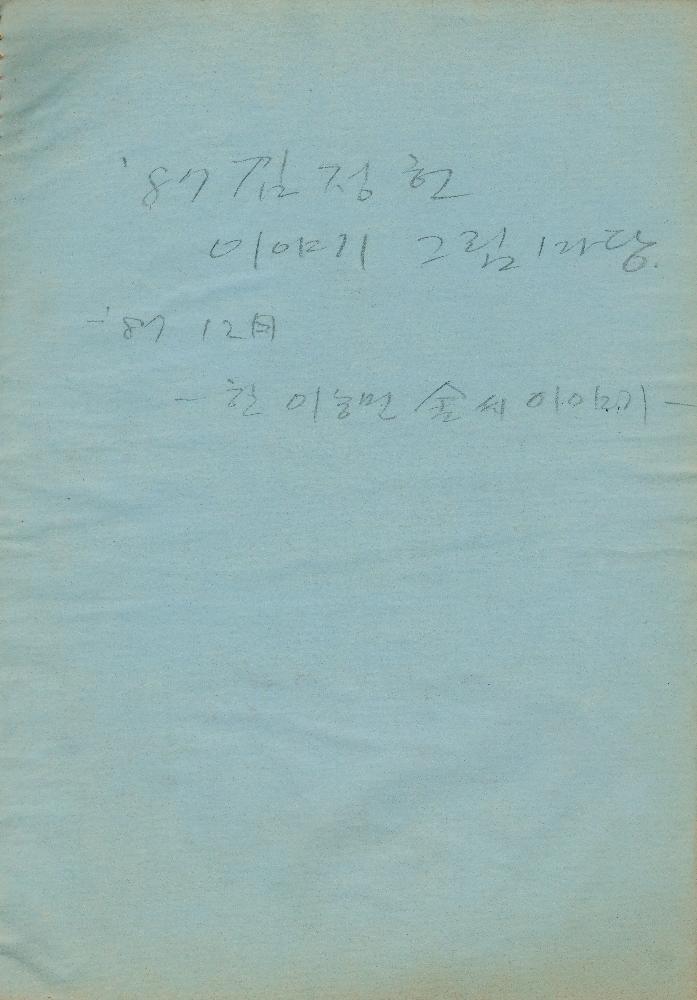 '87 김정헌
이야기 그림마당.
- '87 12月
- 한 이농민 金씨 이야기 -